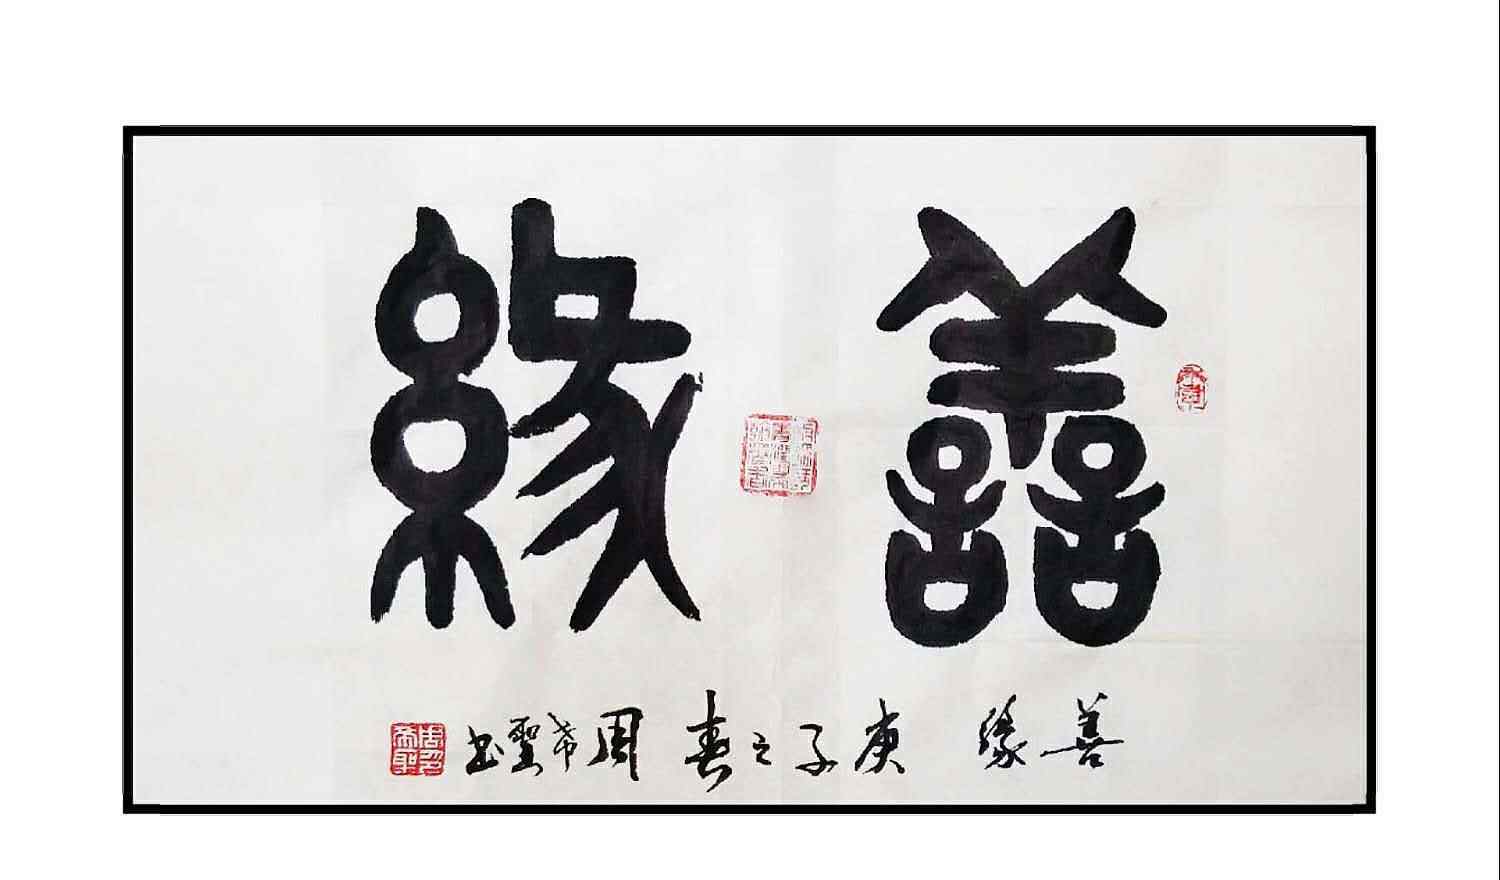 善緣
善緣 庚子之春 周希聖书